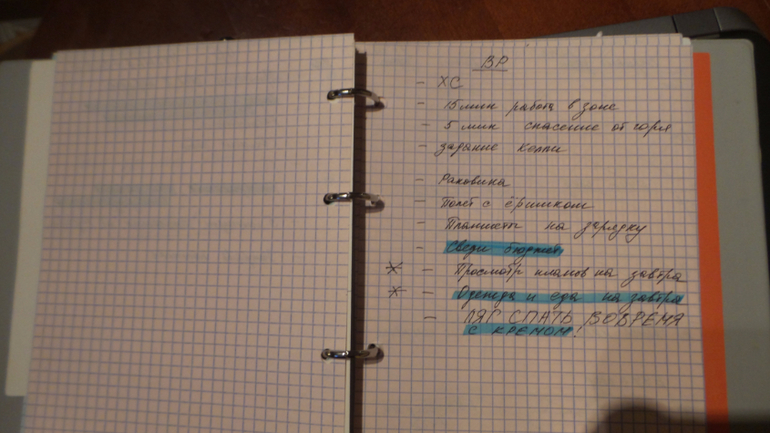 ВР
- ХС
- 15 мин работа в зоне
- 5 мин спасение от горя
- задание Келли
- Раковина
- Полёт с ёршиком
- Планшеты на зарядку
- Сведи бюджет
* - Просмотр планов на завтра
* - Одежда и еда на завтра
- ЛЯГ СПАТЬ ВОВРЕМЯ
С КРЕМОМ.